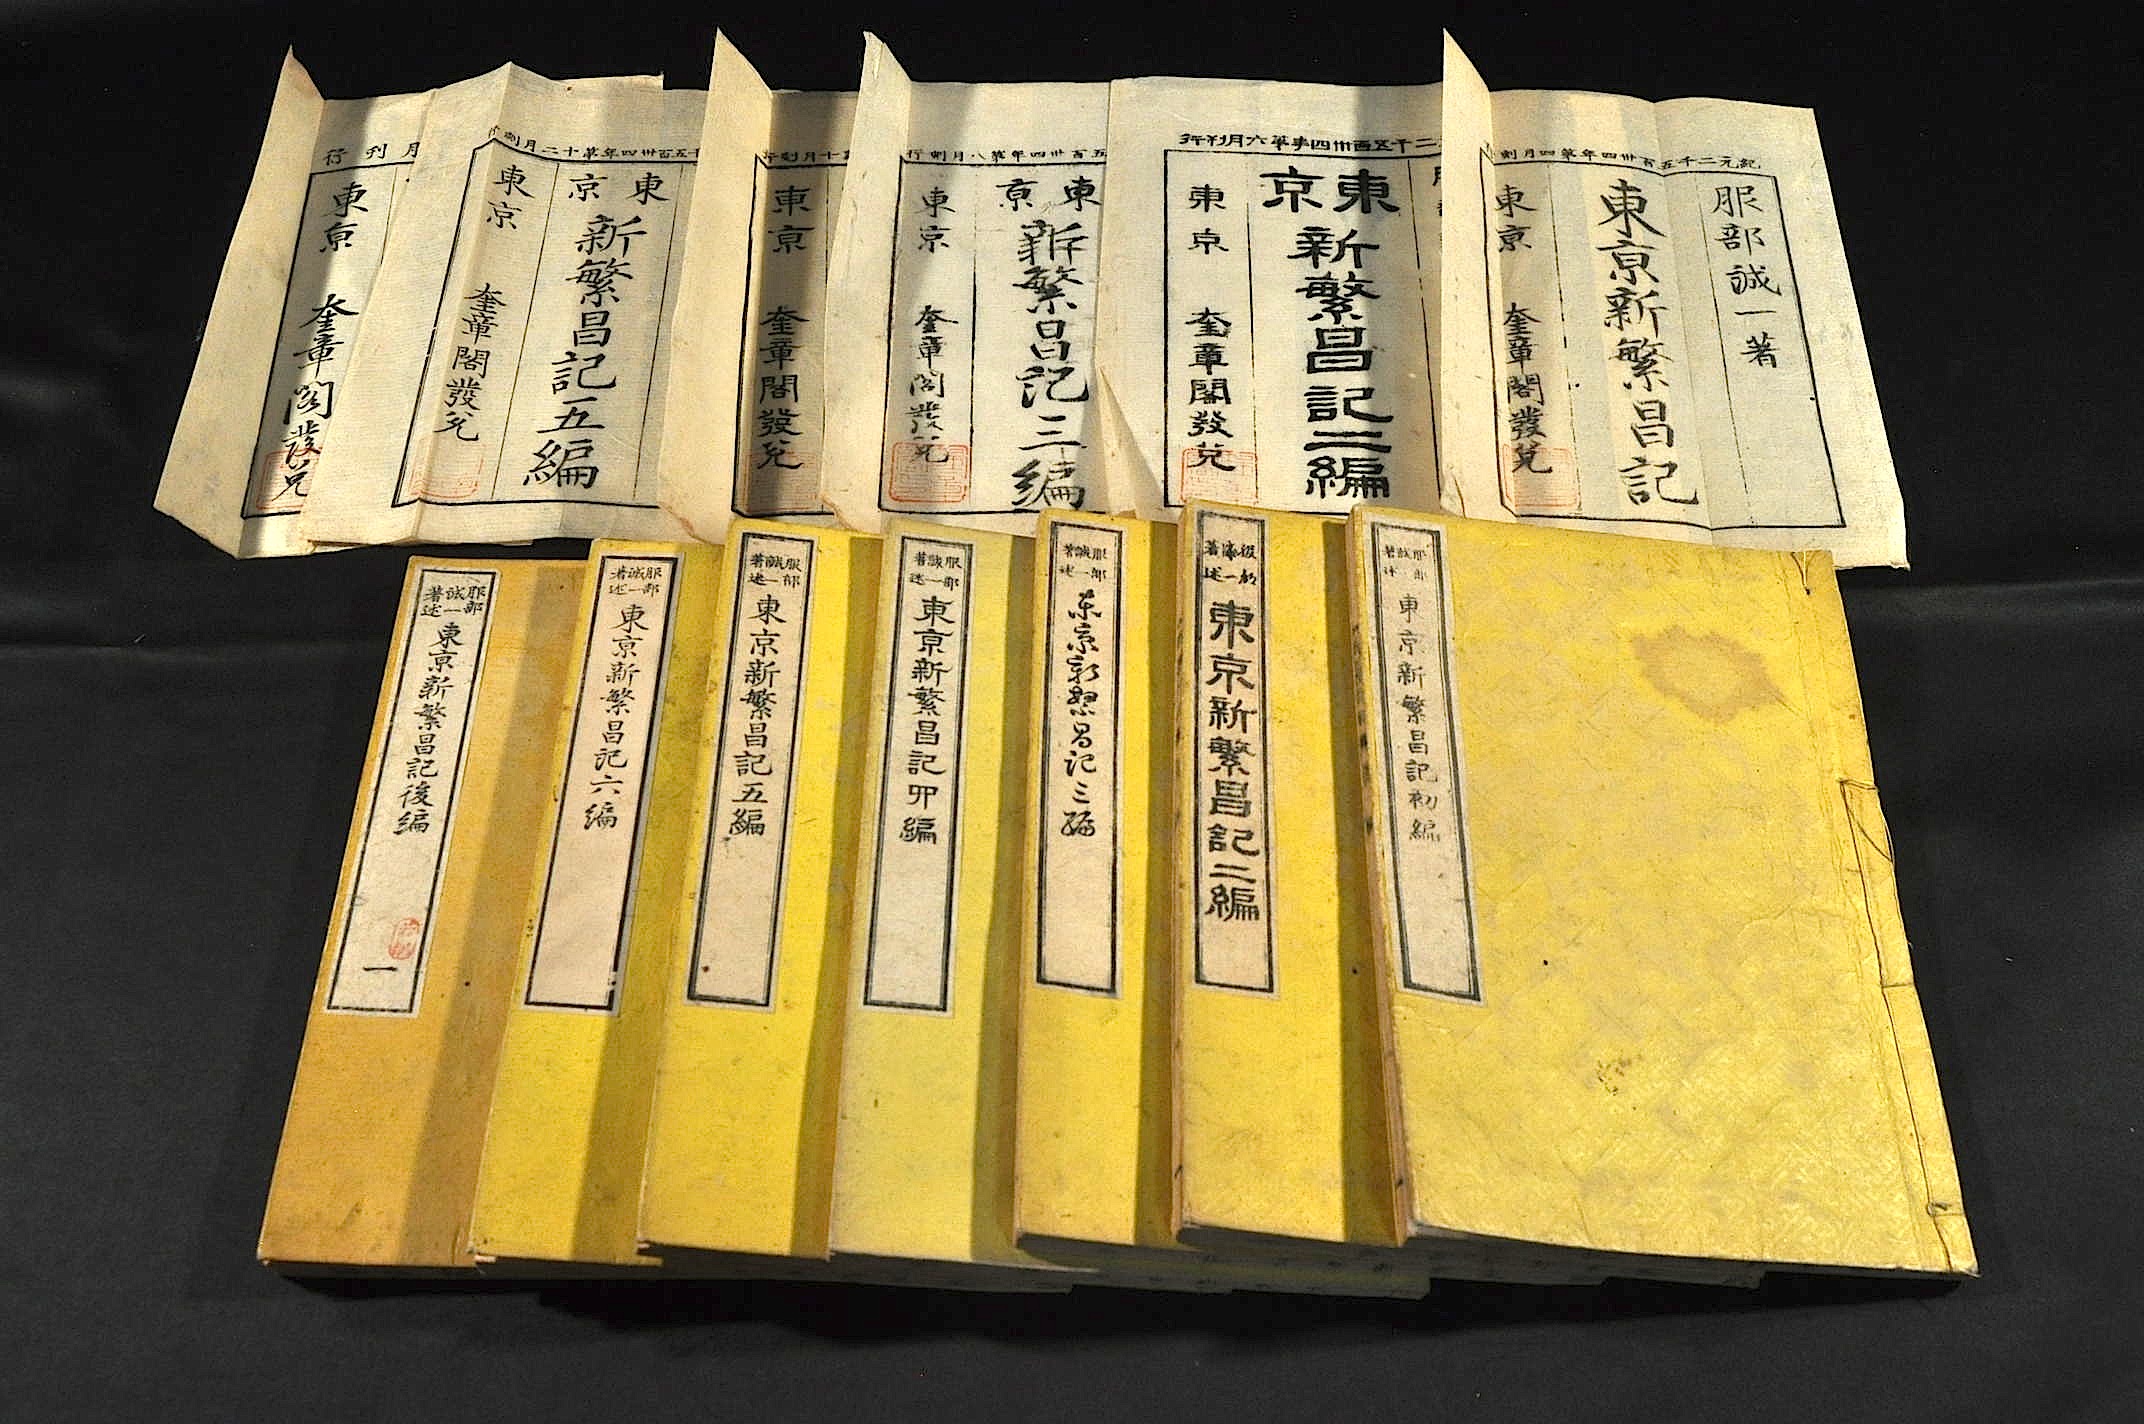 紀元二千五百卅四年第四月刻行
服部誠一著
東京新繁昌記
東京 奎章閣發兌
二千五百卅四年第六月刊行
東京
新繁昌記二編
東京 奎章閣發兌
五百卅四年第八月刻行
東京
新繁昌記三編
東京 奎章閣發兌
十月刻行
東京 奎章閣發兌
千五百卅四年第十二月刻行
東京
新繁昌記五編
東京 奎章閣發兌
月刊行
東京 奎章閣發兌
服部誠一著述
東京新繁昌記初編
服部誠一著述
東京新繁昌記二編
服部誠一著述
东京新繁昌记三编
服部誠一著述
東京新繁昌記卯編
服部誠一著述
東京新繁昌記五編
服部誠一著述
東京新繁昌記六編
服部誠一著述
東京新繁昌記後編
一